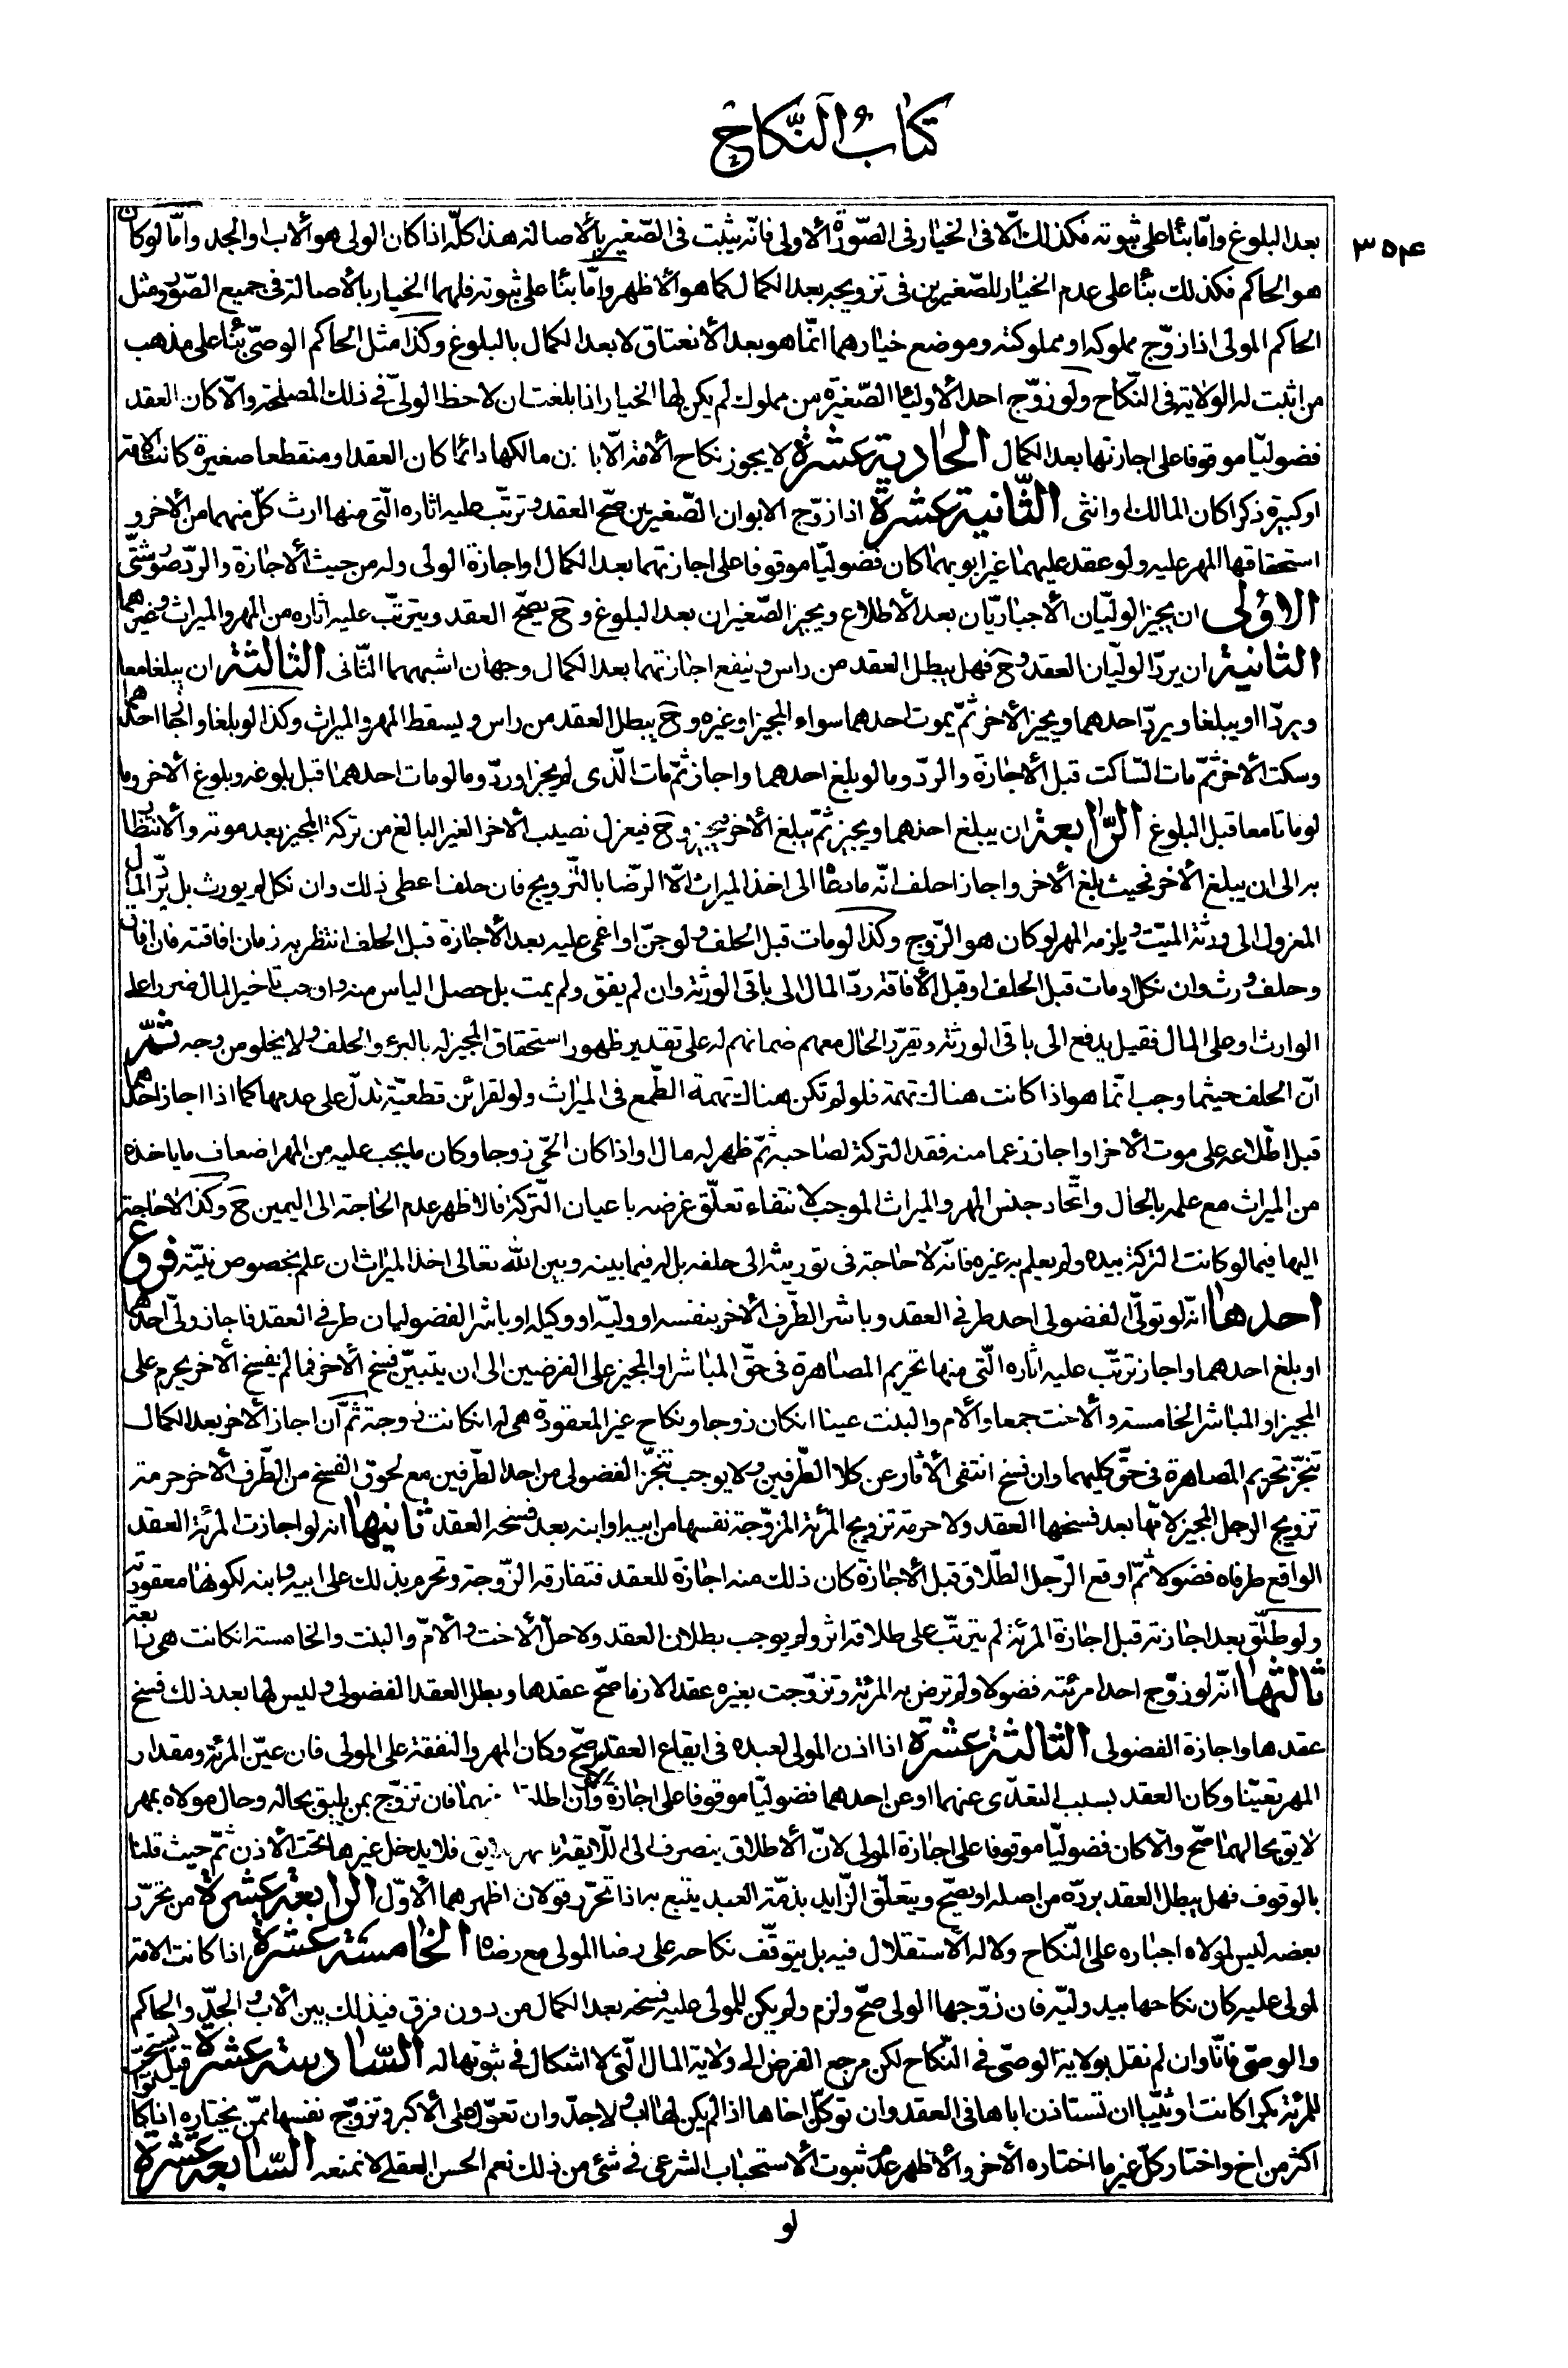 كتاب النّكاح
٣٥۴
بعد البلوغ وامّا بنًا على ثبوته فكذلك الّا فى الخيار فى الصّورة الاولى فانّه يثبت فى الصّغير بالاصالة هذا كلّه اذا كان الولى هو الاب او الجد وامّا لو كان
هو الحاكم فكذلك بنًا على عدم الخيار للصّغيرين فى تزويجه بعد الكمال كما هو الاظهر وامّا بنًا على ثبوته فلهما الخيار بالاصالة فى جميع الصّور ومثل
الحاكم المولى اذا زوّج مملوكه او مملوكته وموضع خيارهما انّما هو بعد الانعتاق لا بعد الكمال بالبلوغ وكذا مثل الحاكم الوصىّ بنًا على مذهب
من اثبت له الولاية فى النّكاح ولو زوّج احد الاوليا الصّغيرة من مملوك لم يكن لها الخيار اذا بلغت ان لاحظ الولىّ فى ذلك المصلحة والّا كان العقد
فضوليّا موقوفا على اجازتها بعد الكمال الحادية عشرة لا يجوز نكاح الامة الّا باذن مالكها دائما كان العقد او منقطعا صغيرة كانت الامة
او كبيرة ذكرا كان المالك او انثى الثّانية عشرة اذا زوّج الابوان الصّغيرين صحّ العقد وترتّب عليه اثاره الّتى منها ارث كلّ منهما من الاخر و
استحقاقها المهر عليه ولو عقد عليهما غير ابويهما كان فضوليّا موقوفا على اجازتهما بعد الكمال او اجازة الولى وله من حيث الاجازة والردّ صور شتّى
الاولى ان يجيز الوليّان الاجباريّان بعد الاطلاع ويجيز الصّغيران بعد البلوغ وح يصحّ العقد ويترتّب عليه اثاره من المهر والميراث وغيرهما
الثانية ان يردّ الوليّان العقد وح فهل يبطل العقد من راس وينفع اجازتهما بعد الكمال وجهان اشبههما الثّانى الثالثة ان يبلغا معا
ويردّا او يبلغا ويردّ احدهما ويجيز الاخر ثمّ يموت احدهما سواء المجيز او غيره وح يبطل العقد من راس ويسقط المهر والميراث وكذا لو بلغا واجاز احدهما
وسكت الاخر ثمّ مات السّاكت قبل الاجازة والردّ وما لو بلغ احدهما واجاز ثمّ مات الّذى لم يجز او ردّ وما لو مات احدهما قبل بلوغه وبلوغ الاخر وما
لو ماتا معا قبل البلوغ الرّابعة ان يبلغ احدهما ويجيز ثمّ يبلغ الاخر ويجيز وح فيعزل نصيب الاخر الغير البالغ من تركة المجيز بعد موته والانتظار
به الى ان يبلغ الاخر فحيث بلغ الاخر واجاز احلف انّه ما دعاه الى اخذ الميراث الّا الرّضا بالتّزويج فان حلف اعطى ذلك وان نكل لم يورث بل يردّ المال
المعزول الى ورثة الميّت ويلزمه المهر لو كان هو الزّوج وكذا لو مات قبل الحلف ولو جنّ او اغمى عليه بعد الاجازة قبل الحلف انتظر به زمان افاقته فان افاق
وحلف ورث وان نكل او مات قبل الحلف او قبل الافاقة ردّ المال الى باقى الورثة وان لم يفق ولم يمت بل حصل الياس منه واوجب تاخير المال ضررا على
الوارث او على المال فقيل يدفع الى باقى الورثة ويقرّر الحال معهم ضمانهم له على تقدير ظهور استحقاق المجيز له بالبرء والحلف ولا يخلو من وجه ثمّ
انّ الحلف حيثما وجب انّما هو اذا كانت هناك تهمة فلو لم تكن هناك تهمة الطّمع فى الميراث ولو لقرائن قطعيّة تدلّ على عدمها كما اذا اجاز احدهما
قبل اطّلاعه على موت الاخر او اجاز زعما منه فقد التركة لصاحبه ثمّ ظهر له مال او اذا كان الحىّ زوجا وكان ما يجب عليه من المهر اضعاف ما ياخذه
من الميراث مع علمه بالحال واتّحاد جنس المهر والميراث الموجب لانتفاء تعلّق غرضه باعيان التّركة فالاظهر عدم الحاجة الى اليمين ح وكذا لا حاجة
اليها فيما لو كانت التركة بيده ولم يعلم به غيره فانّه لا حاجة فى توريثه الى حلفه بل له فيما بينه وبين الله تعالى اخذ الميراث ان علم بخصوص نيّته فروع
احدها انّه لو تولّى الفضولى احد طرفى العقد وباشر الطّرف الاخر بنفسه او وليّه او وكيله او باشر الفضوليان طرفى العقد فاجاز ولىّ احدهما
او بلغ احدهما واجاز ترتّب عليه اثاره الّتى منها تحريم المصاهرة فى حقّ المباشر او المجيز على الفرضين الى ان يتبيّن فسخ الاخر فما لم يفسخ الاخر يحرم على
المجيز او المباشر الخامسة والاخت جمعا والام والبنت عينا انكان زوجا ونكاح غير المعقودة هى له انكانت زوجة ثمّ ان اجاز الاخر بعد الكمال
تنجّز تحريم المصاهرة فى حقّ كليهما وان فسخ انتفى الاثار عن كلا الطّرفين ولا يوجب تنجّز الفضولى من احد الطّرفين مع لحوق الفسخ من الطّرف الاخر حرمة
تزويج الرجل المجيز لامّها بعد فسخها العقد ولا حرمة تزويج المرئة المزوّجة نفسها من ابيه او ابنه بعد فسخه العقد ثانيها انه لو اجازت المرئة العقد
الواقع طرفاه فضولا ثمّ اوقع الرّجل الطّلاق قبل الاجازة كان ذلك منه اجازة للعقد فتفارقه الزّوجة وتحرم بذلك على ابيه وابنه لكونها معقودته
ولو طلّق بعد اجازته قبل اجازة المرئة لم يترتّب على طلاقه اثر ولم يوجب بطلان العقد ولا حلّ الاخت والامّ والبنت والخامسة انكانت هى رابعة
ثالثها انّه لو زوّج احد امرئة فضولا ولم ترض به المرئة وتزوّجت بغيره عقدا لازما صحّ عقدها وبطل العقد الفضولى وليس لها بعد ذلك فسخ
عقدها واجازة الفضولى الثالثة عشرة اذا اذن المولى لعبده فى ايقاع العقد صحّ وكان المهر والنفقة على المولى فان عيّن المرئة ومقدار
المهر تعيّنا وكان العقد بسبب التعدّى عنهما او عن احدهما فضوليّا موقوفا على اجازة وان اطلق فان تزوّج بمن يليق بحاله وحال مولاه بمهر
لايق بحالهما صحّ والّا كان فضوليّا موقوفا على اجازة المولى لانّ الاطلاق ينصرف الى اللّايقة فلا يدخل غيرها تحت الاذن ثمّ حيث قلنا
بالوقوف فهل يبطل العقد بردّه من اصله او يصحّ ويتعلّق الزّايد بذمّة العبد يتبع به اذا تحرّر قولان اظهرهما الاوّل الرابعة عشرة من تحرّر
بعضه ليس لمولاه اجباره على النّكاح ولا له الاستقلال فيه بل يتوقّف نكاحه على رضا المولى مع رضاه الخامسة عشرة اذا كانت الامة
لمولى عليه كان نكاحها بيد وليّه فان زوّجها الولى صحّ ولزم ولم يكن للمولى عليه فسخه بعد الكمال من دون فرق فى ذلك بين الاب والجدّ والحاكم
والوصى فانّا وان لم نقل بولاية الوصى فى النّكاح لكن مرجع الفرض الى ولاية المال الّتى لا اشكال فى ثبوتها له السّادسة عشرة قيل يستحبّ
للمرئة بكرا كانت او ثيّبا ان تستاذن اباها فى العقد وان توكّل اخاها اذا لم يكن لها اب ولا جدّ وان تعوّل على الاكبر وتزوّج نفسها ممّن يختاره اذا كانوا
اكثر من اخ واختار كلّ غير ما اختاره الاخر والاظهر عدم ثبوت الاستحباب الشرعى فى شئ من ذلك نعم الحسن العقلى لا نمنعه السّابعة عشرة
لو